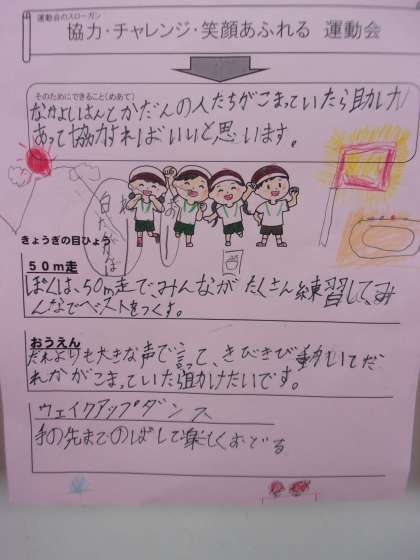 運動会のスローガン
協力・チャレンジ・笑顔あふれる 運動会
そのためにできること(めあて)
なかよしはんとかだんの人たちがこまっていたら助け力
あって協力すればいいと思います。
きょうぎの目ひょう
50m走
ぼくは、50m走で、みんながたくさん練習して、み
んなでベストをつくす。
おうえん
だれよりも大きな声で言って、きびきび動いてだ
れかがこまっていた助けたいです。
ウェイクアップダンス
手の先までのばして楽しくおどる